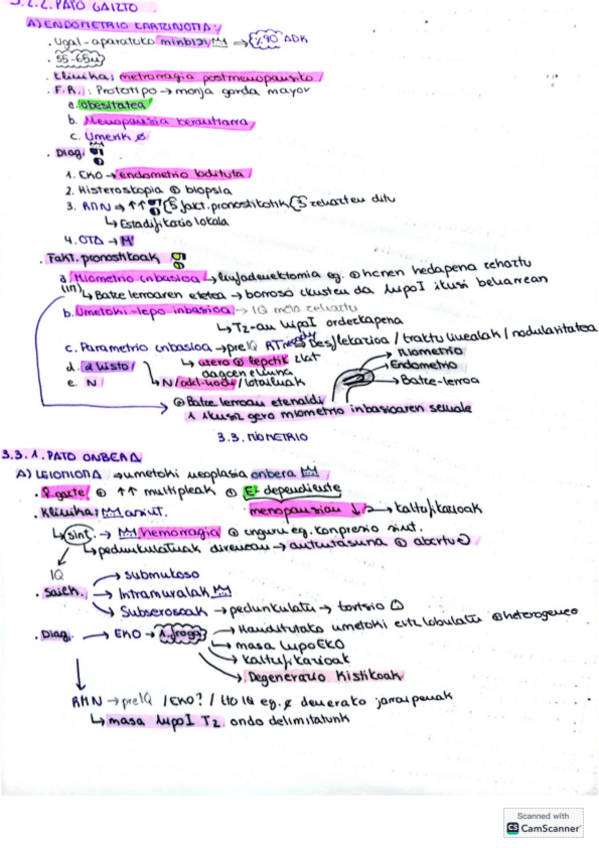 3.2.2. PATO GAIZTO
A) ENDOMETRIO KARTZINOMA:
. Ugal-aparatuko minbizi → %90 ADK
. 55-65u
. Klinika: metrorragia postmenopausiko
. F.R.: Prototipo → monja gorda mayor
a. Obesitatea
b. Menopausia berantiarra
c. Umerik ∅
. Diag.
1. EKO → endometrio lodituta
2. Histeroskopia ⊕ biopsia
3. RMN → ↑↑ (5 fakt. pronostikotik (3 zehazten ditu
↳ Estadifikazio lokala
4. OTA → M
. Fakt. pronostikoak
a. Miometrio inbasioa ↳ linfadenektomia eg. ⊕ honen hedapena zehaztu
(in) ↳ Batze lerroaren etetea → borroso ikusten da hipoI ikusi beharrean
b. Umetoki-lepo inbasioa → IQ mota zehaztu
↳ T2-an hipoI ordezkapena
c. Parametrio inbasioa → preIQ RT
d. d histo
e. N
↳ N/
Miometrio
Endometrio
Batze-lerroa
⊕ Batze lerroan etenaldi
1 ikusiz gero miometrio inbasioaren seinale
3.3. MIOMETRIO
3.3.1. PATO ONBERA
A) LEIOMIOMA → umetoki neoplasia onbera
. ♀ gazte ⊕ ↑↑ multipleak ⊕ E-dependiente
menopausian ↓ → kaltzifikazioak
. Klinika: asint.
↳ sint. → hemorragia ⊕ inguru eg. konpresio sint.
↳ pedunkulatuak direnean → antzutasuna ⊕ abortu
IQ
. Sailk. → submukoso
→ Intramuralak
→ Subserosoak → pedunkulatu → tortsio
. Diag. → EKO → 1. froga → Handitutako umetoki ertz lobulatu ⊕ heterogeneo
→ masa hipoEKO
→ kaltzifikazioak
→ Degenerazio kistikoak
RMN → preIQ / EKO? / UO IQ eg. ∅ denerako jarraipenak
↳ masa hipoI T2 ondo delimitatunk
Scanned with
CS CamScanner